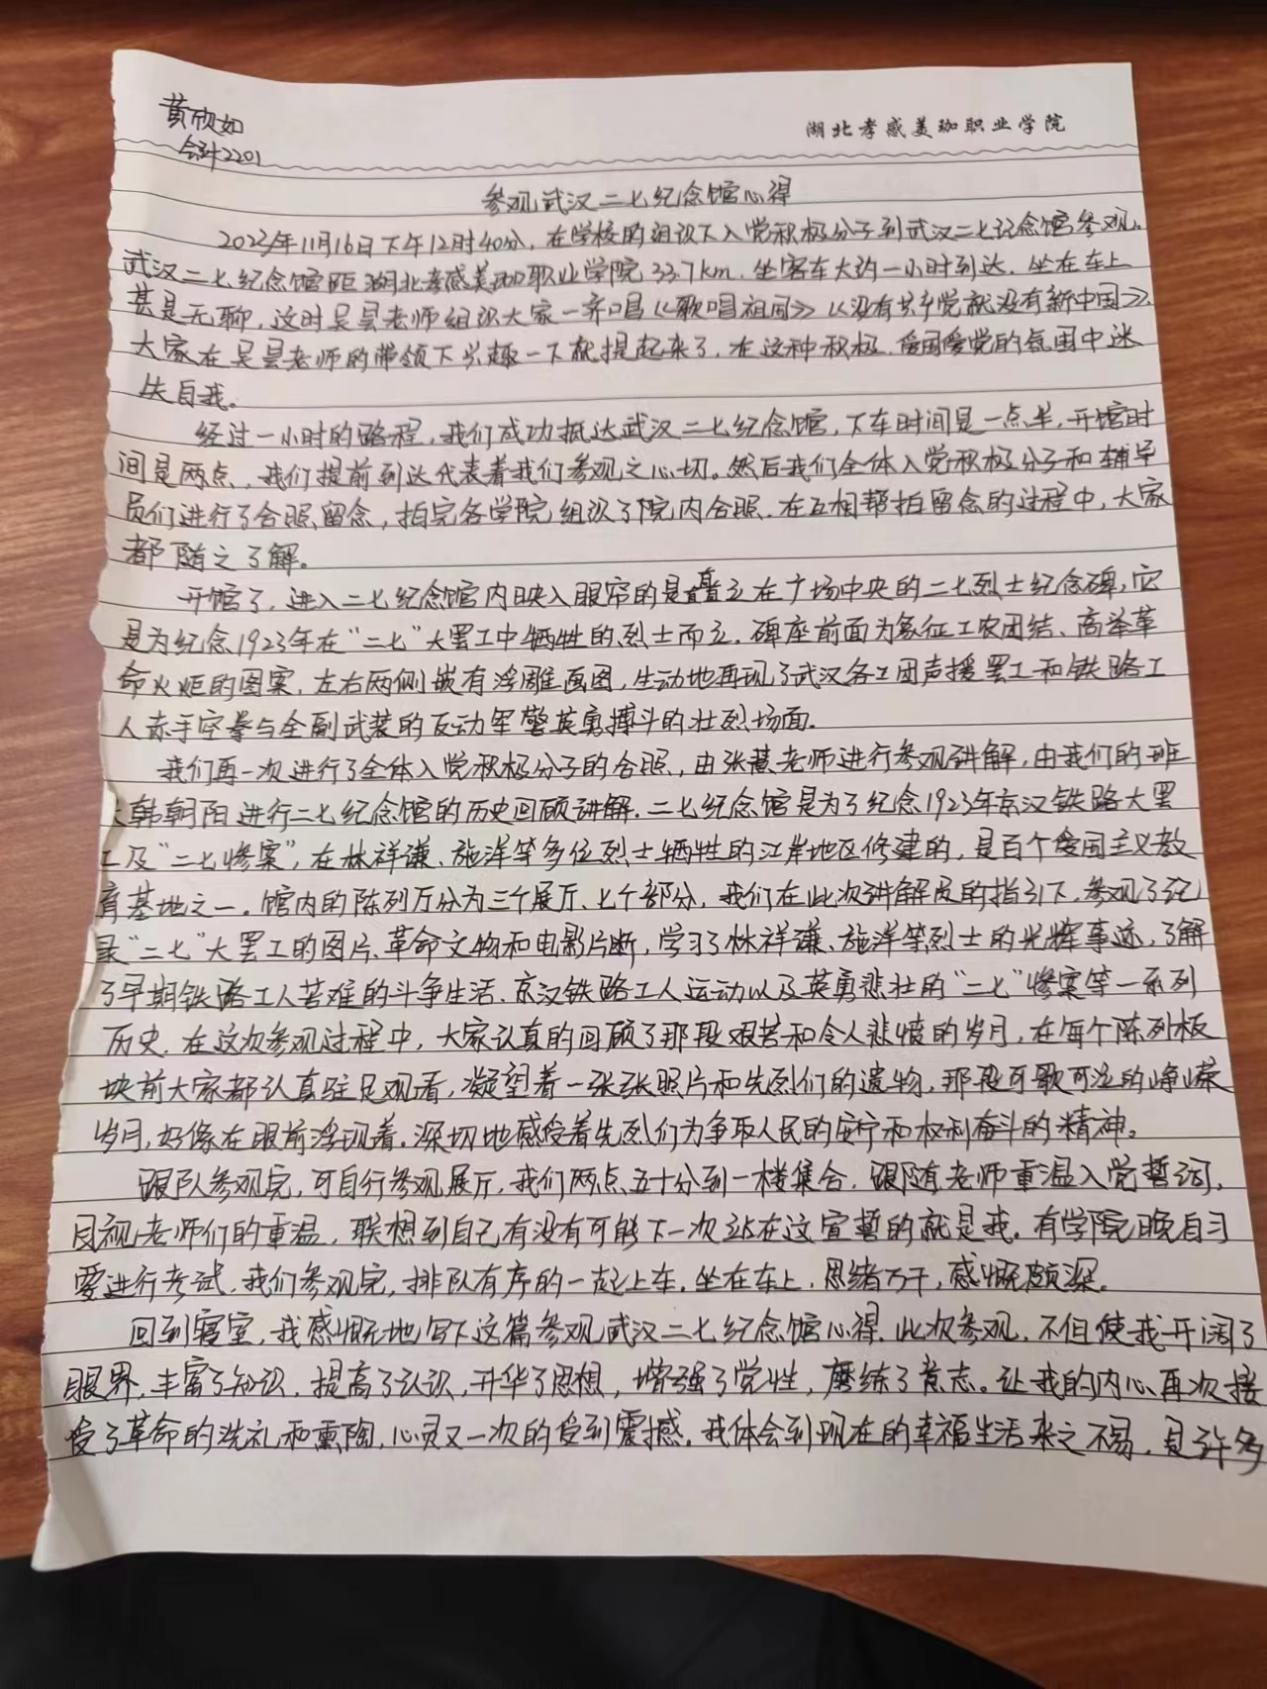 黄欣如
会计2201
湖北孝感美珈职业学院
参观武汉二七纪念馆心得
2023年11月16日下午12时40分，在学校的组织下入党积极分子到武汉二七纪念馆参观。
武汉二七纪念馆距湖北孝感美珈职业学院33.7km，坐客车大约一小时到达，坐在车上
甚是无聊，这时吴昙老师组织大家一齐唱《歌唱祖国》《没有共产党就没有新中国》，
大家在吴昙老师的带领下兴趣一下就提起来了，在这种积极、爱国爱党的氛围中迷
失自我。
经过一小时的路程，我们成功抵达武汉二七纪念馆，下车时间是一点半，开馆时
间是两点，我们提前到达代表着我们参观之心切。然后我们全体入党积极分子和辅导
员们进行了合照留念，拍完各学院组织了院内合照，在互相帮拍留念的过程中，大家
都随之了解。
开馆了，进入二七纪念馆内映入眼帘的是矗立在广场中央的二七烈士纪念碑，它
是为纪念1923年在“二七”大罢工中牺牲的烈士而立，碑座前面为象征工农团结、高举革
命火炬的图案，左右两侧嵌有浮雕画图，生动地再现了武汉各工团声援罢工和铁路工
人赤手空拳与全副武装的反动军警英勇搏斗的壮烈场面。
我们再一次进行了全体入党积极分子的合照，由张慧老师进行参观讲解，由我们的班
长韩朝阳进行二七纪念馆的历史回顾讲解。二七纪念馆是为了纪念1923年京汉铁路大罢
工及“二七惨案”，在林祥谦、施洋等多位烈士牺牲的江岸地区修建的，是百个爱国主义教
育基地之一。馆内的陈列厅分为三个展厅、七个部分，我们在此次讲解员的指引下，参观了记
录“二七”大罢工的图片、革命文物和电影片断，学习了林祥谦、施洋等烈士的光辉事迹，了解
了早期铁路工人苦难的斗争生活、京汉铁路工人运动以及英勇悲壮的“二七”惨案等一系列
历史。在这次参观过程中，大家认真的回顾了那段艰苦和令人悲愤的岁月，在每个陈列板
块前大家都认真驻足观看，凝望着一张张照片和先烈们的遗物，那段可歌可泣的峥嵘
岁月，好像在眼前浮现着。深切地感受着先烈们为争取人民的安宁和权利奋斗的精神。
跟队参观完，可自行参观展厅，我们两点五十分到一楼集合，跟随老师重温入党誓词，
目视老师们的重温，联想到自己有没有可能下一次站在这宣誓的就是我。有学院晚自习
要进行考试，我们参观完，排队有序的一起上车。坐在车上，思绪万千，感慨颇深。
回到寝室，我感慨地写下这篇参观武汉二七纪念馆心得，此次参观，不但使我开阔了
眼界，丰富了知识，提高了认识，升华了思想，增强了党性，磨练了意志。让我的内心再次接
受了革命的洗礼和熏陶，心灵又一次的受到震撼。我体会到现在的幸福生活来之不易，是许多